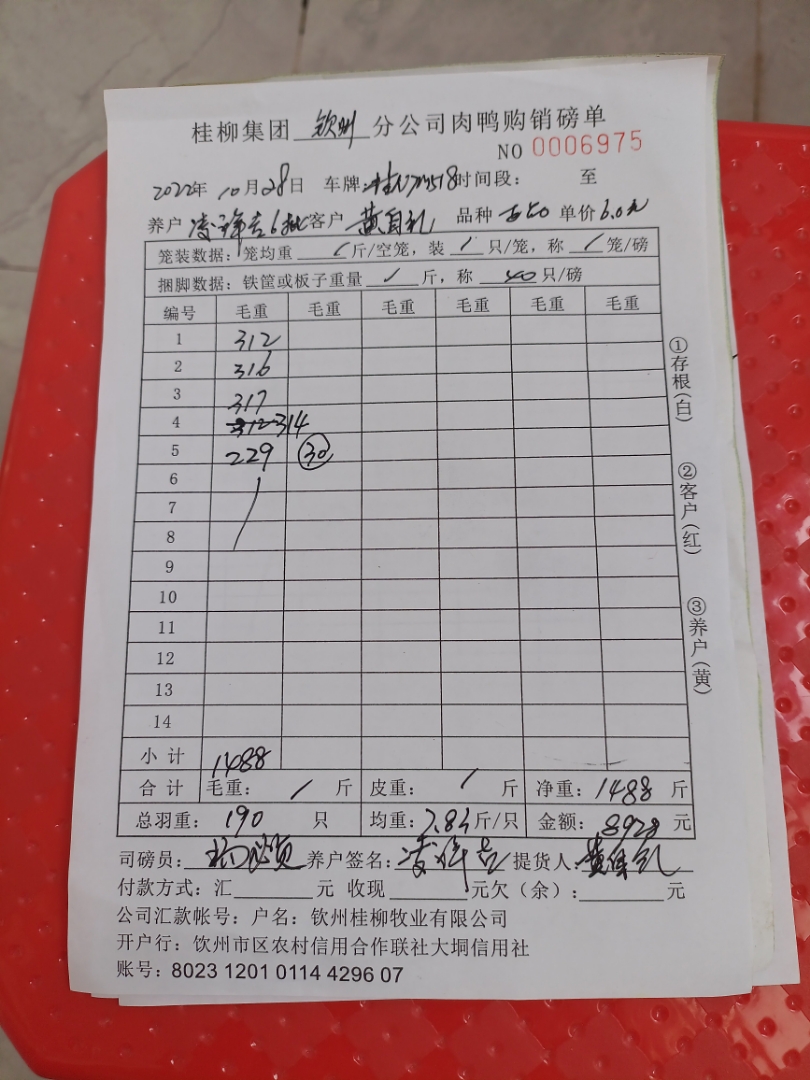 桂柳集团 钦州 分公司肉鸭购销磅单
NO 0006975
2022年 10月28日 车牌: 时间段: 至
养户 凌 客户 黄自礼 品种 单价 6.0元
笼装数据: 笼均重 / 斤/空笼, 装 / 只/笼, 称 / 笼/磅
捆脚数据: 铁筐或板子重量 / 斤, 称 40 只/磅
编号 毛重 毛重 毛重 毛重 毛重 毛重
1 312
2 316
3 317
4 312 314
5 229 30
6
7
8
9
10
11
12
13
14
小计 1488
合计 毛重: / 斤 皮重: / 斤 净重: 1488 斤
总羽重: 190 只 均重: 7.83斤/只 金额: 8928 元
司磅员: 养户签名: 凌 提货人: 黄自礼
付款方式: 汇 元 收现 元欠(余): 元
公司汇款帐号: 户名: 钦州桂柳牧业有限公司
开户行: 钦州市区农村信用合作联社大垌信用社
账号: 8023 1201 0114 4296 07
①存根(白)
②客户(红)
③养户(黄)